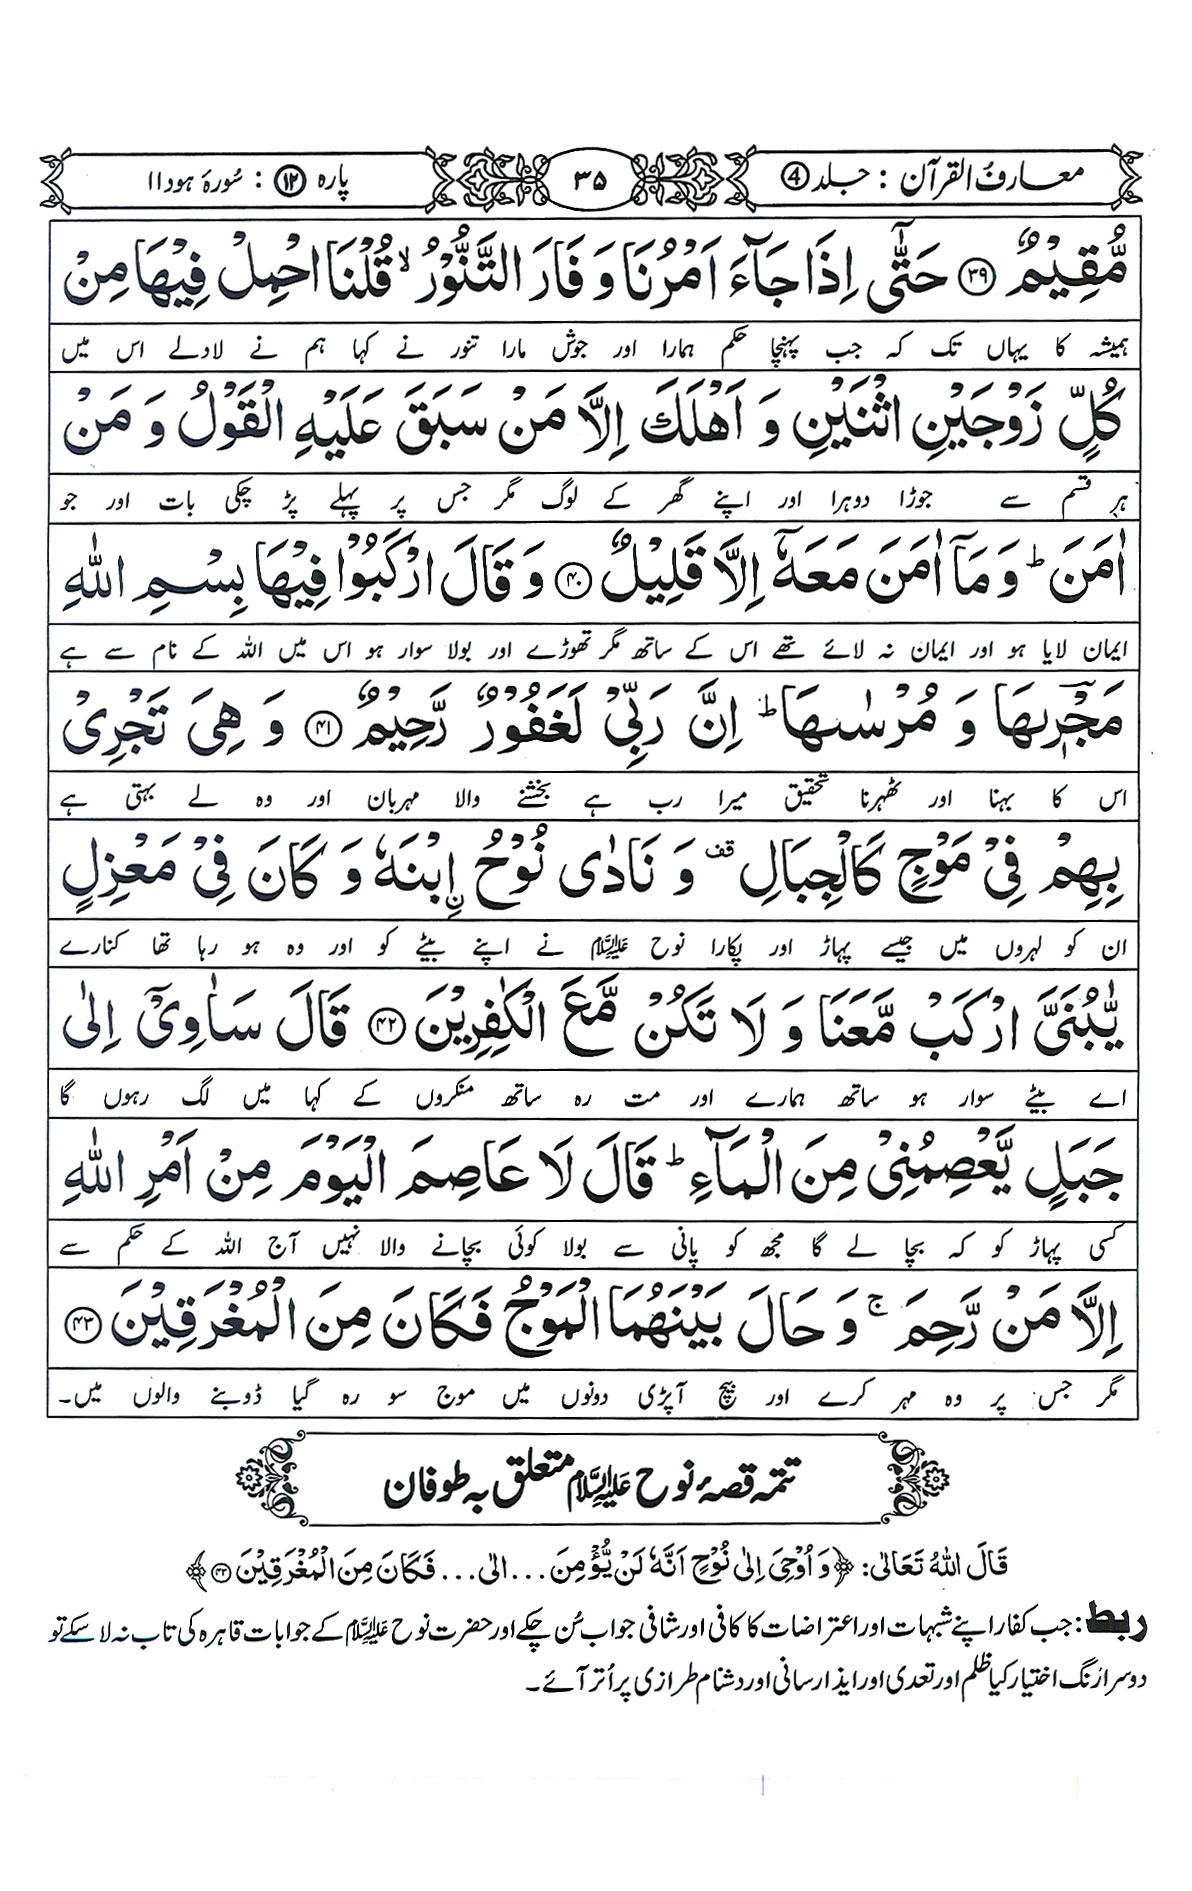 معارف القرآن : جلد ④
۳۵
پارہ ⑫ : سُورۂ ہود ۱۱
مُّقِيْمٌ ﴿۳۹﴾ حَتّٰۤى اِذَا جَآءَ اَمْرُنَا وَ فَارَ التَّنُّوْرُ ۙ قُلْنَا احْمِلْ فِيْهَا مِنْ
ہمیشہ کا یہاں تک کہ جب پہنچا حکم ہمارا اور جوش مارا تنور نے کہا ہم نے لادلے اس میں
كُلٍّ زَوْجَيْنِ اثْنَيْنِ وَ اَهْلَكَ اِلَّا مَنْ سَبَقَ عَلَيْهِ الْقَوْلُ وَ مَنْ
ہر قسم سے جوڑا دوہرا اور اپنے گھر کے لوگ مگر جس پر پہلے پڑ چکی بات اور جو
اٰمَنَ ؕ وَ مَاۤ اٰمَنَ مَعَهٗۤ اِلَّا قَلِيْلٌ ﴿۴۰﴾ وَ قَالَ ارْكَبُوْا فِيْهَا بِسْمِ اللّٰهِ
ایمان لایا ہو اور ایمان نہ لائے تھے اس کے ساتھ مگر تھوڑے اور بولا سوار ہو اس میں اللہ کے نام سے ہے
مَجْرٖىهَا وَ مُرْسٰىهَا ؕ اِنَّ رَبِّىْ لَغَفُوْرٌ رَّحِيْمٌ ﴿۴۱﴾ وَ هِىَ تَجْرِىْ
اس کا بہنا اور ٹھہرنا تحقیق میرا رب ہے بخشنے والا مہربان اور وہ لے بہتی ہے
بِهِمْ فِىْ مَوْجٍ كَالْجِبَالِ ۫ وَ نَادٰى نُوْحُ ۨابْنَهٗ وَ كَانَ فِىْ مَعْزِلٍ
ان کو لہروں میں جیسے پہاڑ اور پکارا نوح علیہ السلام نے اپنے بیٹے کو اور وہ ہو رہا تھا کنارے
يّٰبُنَىَّ ارْكَبْ مَّعَنَا وَ لَا تَكُنْ مَّعَ الْكٰفِرِيْنَ ﴿۴۲﴾ قَالَ سَاٰوِىْۤ اِلٰى
اے بیٹے سوار ہو ساتھ ہمارے اور مت رہ ساتھ منکروں کے کہا میں لگ رہوں گا
جَبَلٍ يَّعْصِمُنِىْ مِنَ الْمَآءِ ؕ قَالَ لَا عَاصِمَ الْيَوْمَ مِنْ اَمْرِ اللّٰهِ
کسی پہاڑ کو کہ بچا لے گا مجھ کو پانی سے بولا کوئی بچانے والا نہیں آج اللہ کے حکم سے
اِلَّا مَنْ رَّحِمَ ۚ وَ حَالَ بَيْنَهُمَا الْمَوْجُ فَكَانَ مِنَ الْمُغْرَقِيْنَ ﴿۴۳﴾
مگر جس پر وہ مہر کرے اور بیچ آپڑی دونوں میں موج سو رہ گیا ڈوبنے والوں میں۔
تتمہ قصۂ نوح علیہ السلام متعلق بہ طوفان
قَالَ اللهُ تَعَالٰى: ﴿وَ اُوْحِىَ اِلٰى نُوْحٍ اَنَّهٗ لَنْ يُّؤْمِنَ ... الى ... فَكَانَ مِنَ الْمُغْرَقِيْنَ ۴۳﴾
ربط: جب کفار اپنے شبہات اور اعتراضات کا کافی اور شافی جواب سُن چکے اور حضرت نوح علیہ السلام کے جوابات قاہرہ کی تاب نہ لاسکے تو
دوسرا رنگ اختیار کیا ظلم اور تعدی اور ایذا رسانی اور دشنام طرازی پر اُتر آئے۔